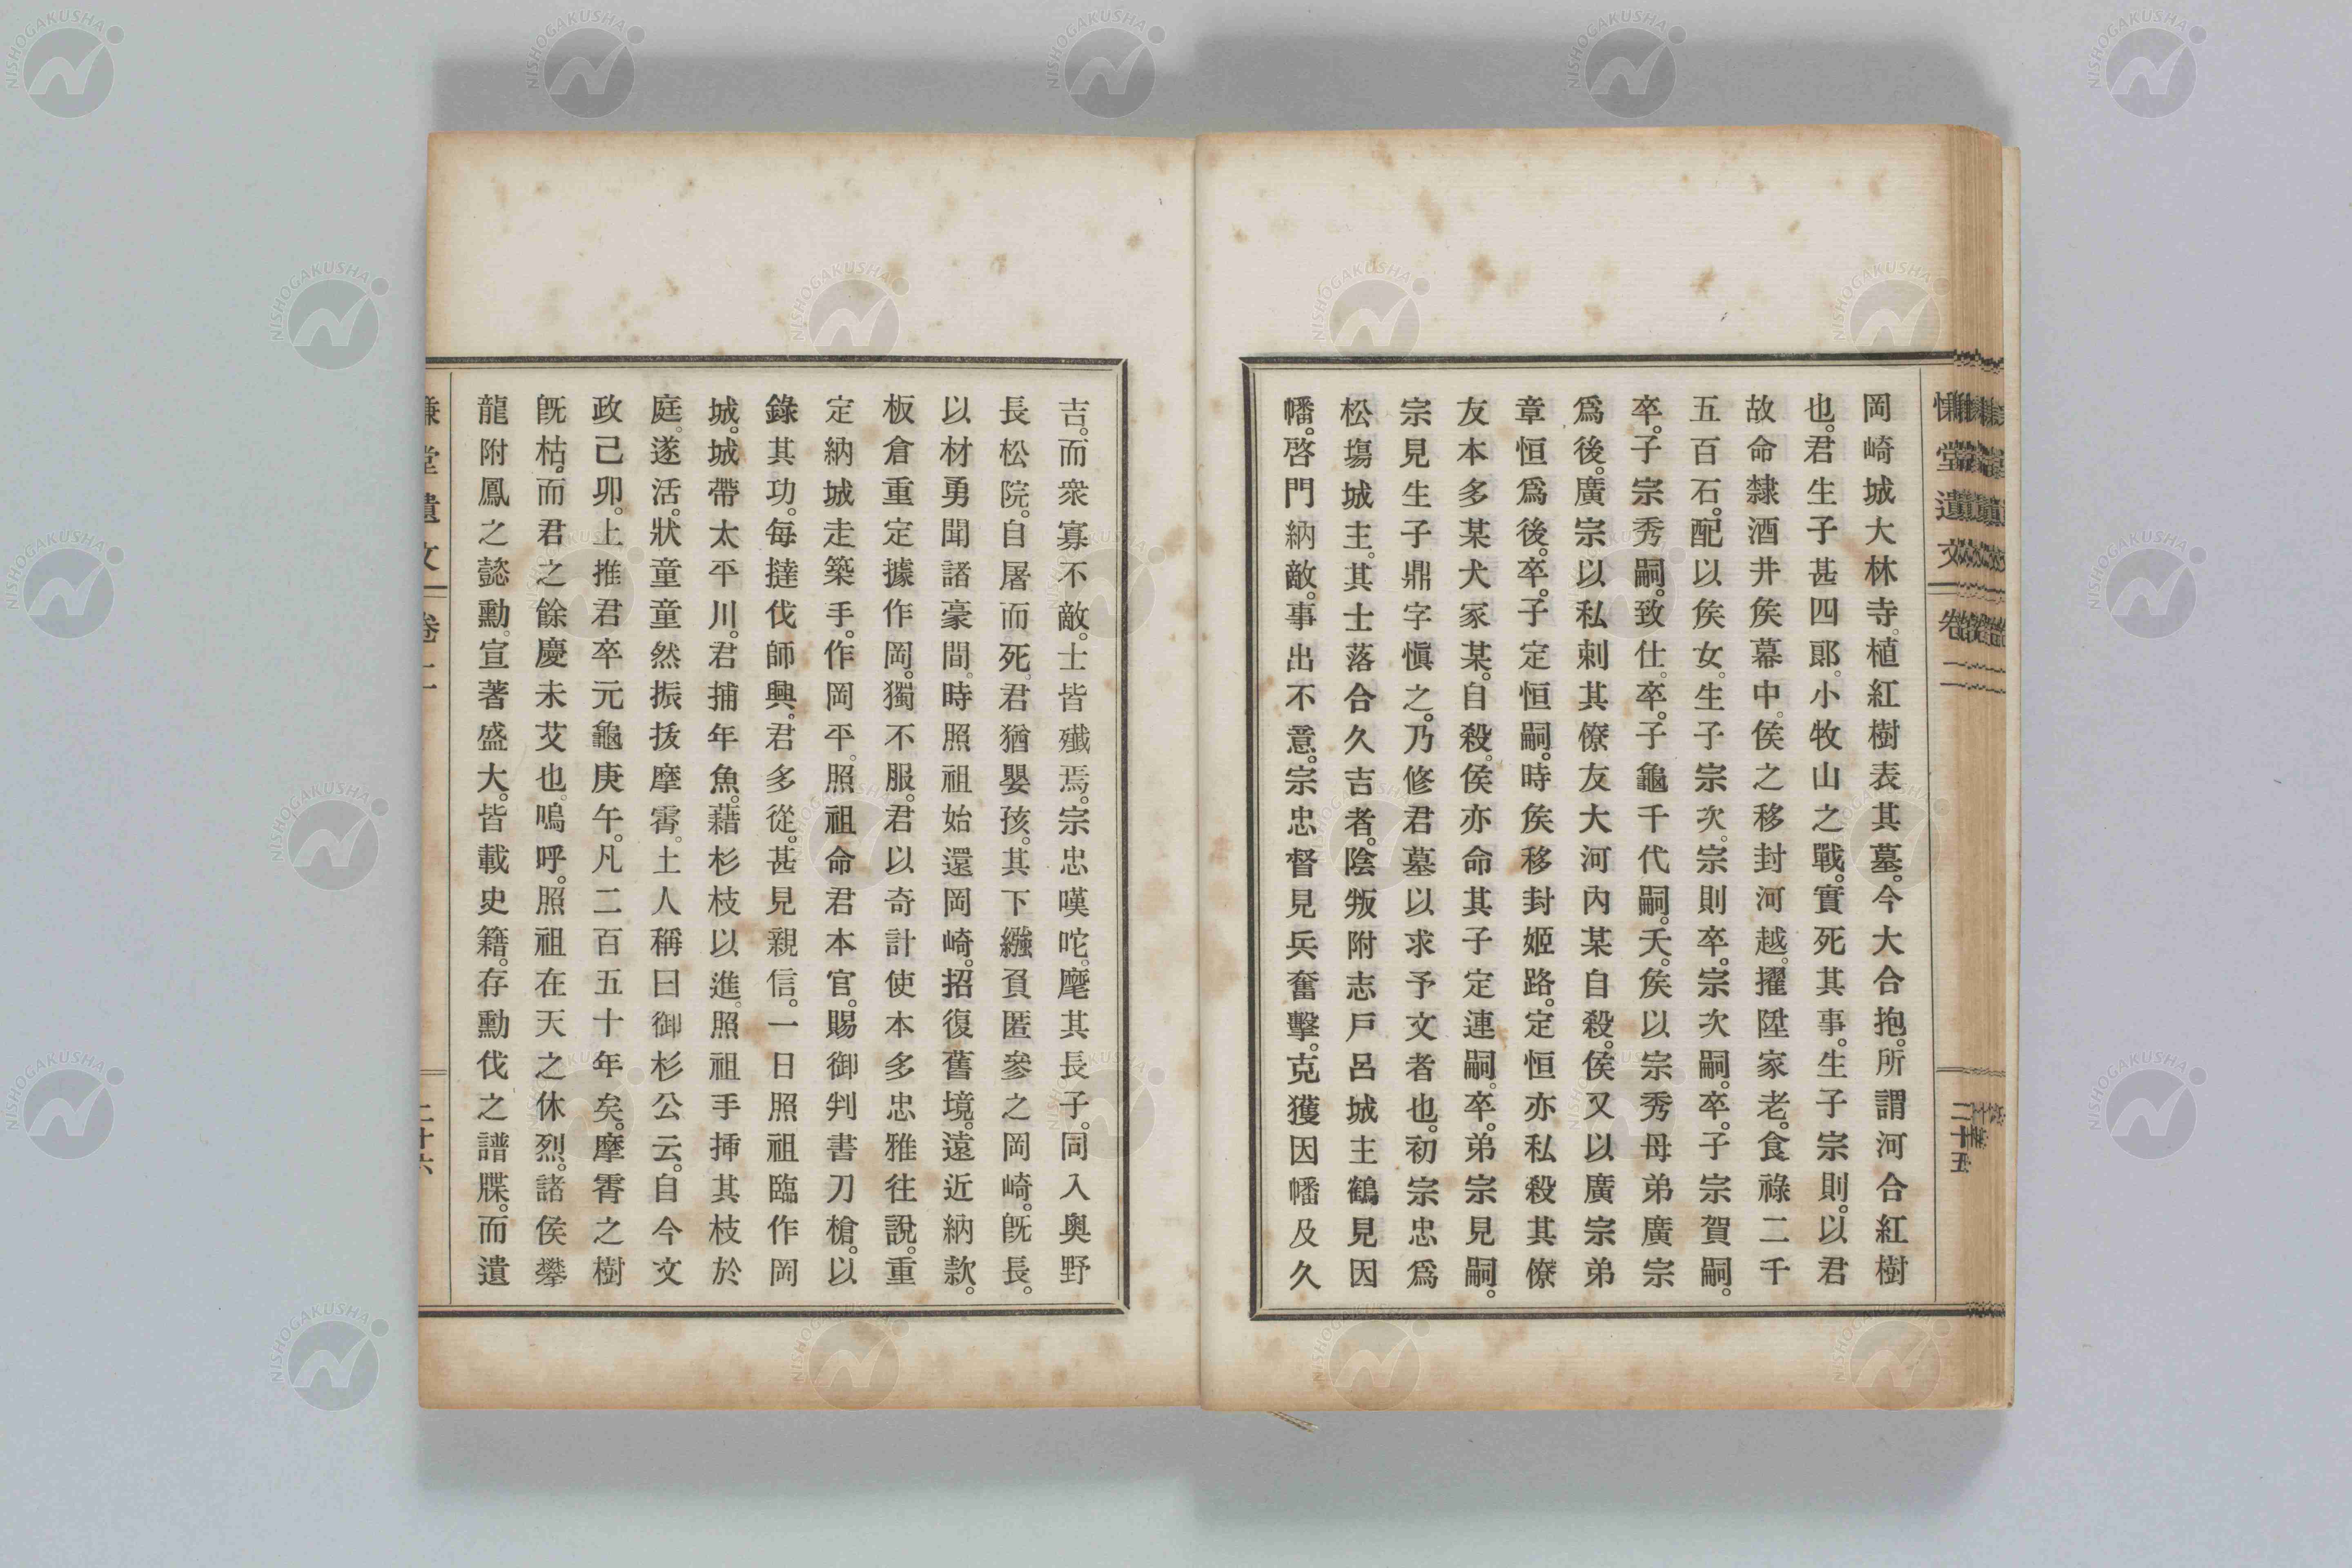 岡崎城大林寺。植紅樹表其墓。今大合抱。所謂河合紅樹
也。君生子甚四郎。小牧山之戰。實死其事。生子宗則。以君
故命隸酒井侯幕中。侯之移封河越。擢陞家老。食祿二千
五百石。配以侯女。生子宗次。宗則卒。宗次嗣。卒。子宗賀嗣。
卒。子宗秀嗣。致仕。卒。子龜千代嗣。夭。侯以宗秀母弟廣宗
爲後。廣宗以私刺其僚友大河內某自殺。侯又以廣宗弟
章恒爲後。卒。子定恒嗣。時侯移封姬路。定恒亦私殺其僚
友本多某犬家某。自殺。侯亦命其子定連嗣。卒。弟宗見嗣。
宗見生子鼎字愼之。乃修君墓以求予文者也。初宗忠爲
松塲城主。其士落合久吉者。陰叛附志戶呂城主鶴見因
幡。啓門納敵。事出不意。宗忠督見兵奮擊。克獲因幡及久
吉。而衆寡不敵。士皆殲焉。宗忠嘆咤。麾其長子。同入奥野
長松院。自屠而死。君猶嬰孩。其下繈負匿參之岡崎。旣長。
以材勇聞諸豪間。時照祖始還岡崎。招復舊境。遠近納款。
板倉重定據作岡。獨不服。君以奇計使本多忠雅往說。重
定納城走築手。作岡平。照祖命君本官。賜御判書刀槍。以
錄其功。每撻伐師興。君多從。甚見親信。一日照祖臨作岡
城。城帶太平川。君捕年魚。藉杉枝以進。照祖手揷其枝於
庭。遂活。狀童童然振拔摩霄。土人稱曰御杉公云。自今文
政己卯。上推君卒元龜庚午。凡二百五十年矣。摩霄之樹
旣枯。而君之餘慶未艾也。嗚呼。照祖在天之休烈。諸侯攀
龍附鳳之懿勳。宣著盛大。皆載史籍。存勳伐之譜牒。而遺
慊堂遺文
卷二
二十五
二十六
NISHOGAKUSHA